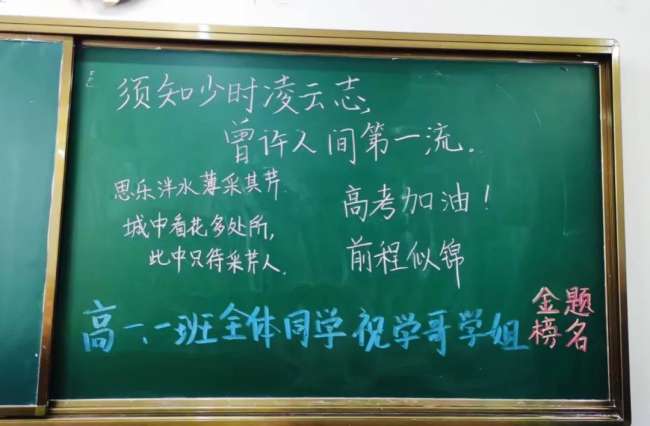 须知少时凌云志,
曾许人间第一流.
思乐泮水薄采其芹.
城中看花多处所,
此中只待采芹人.
高考加油！
前程似锦
高一、一班全体同学祝学哥学姐
金题
榜名